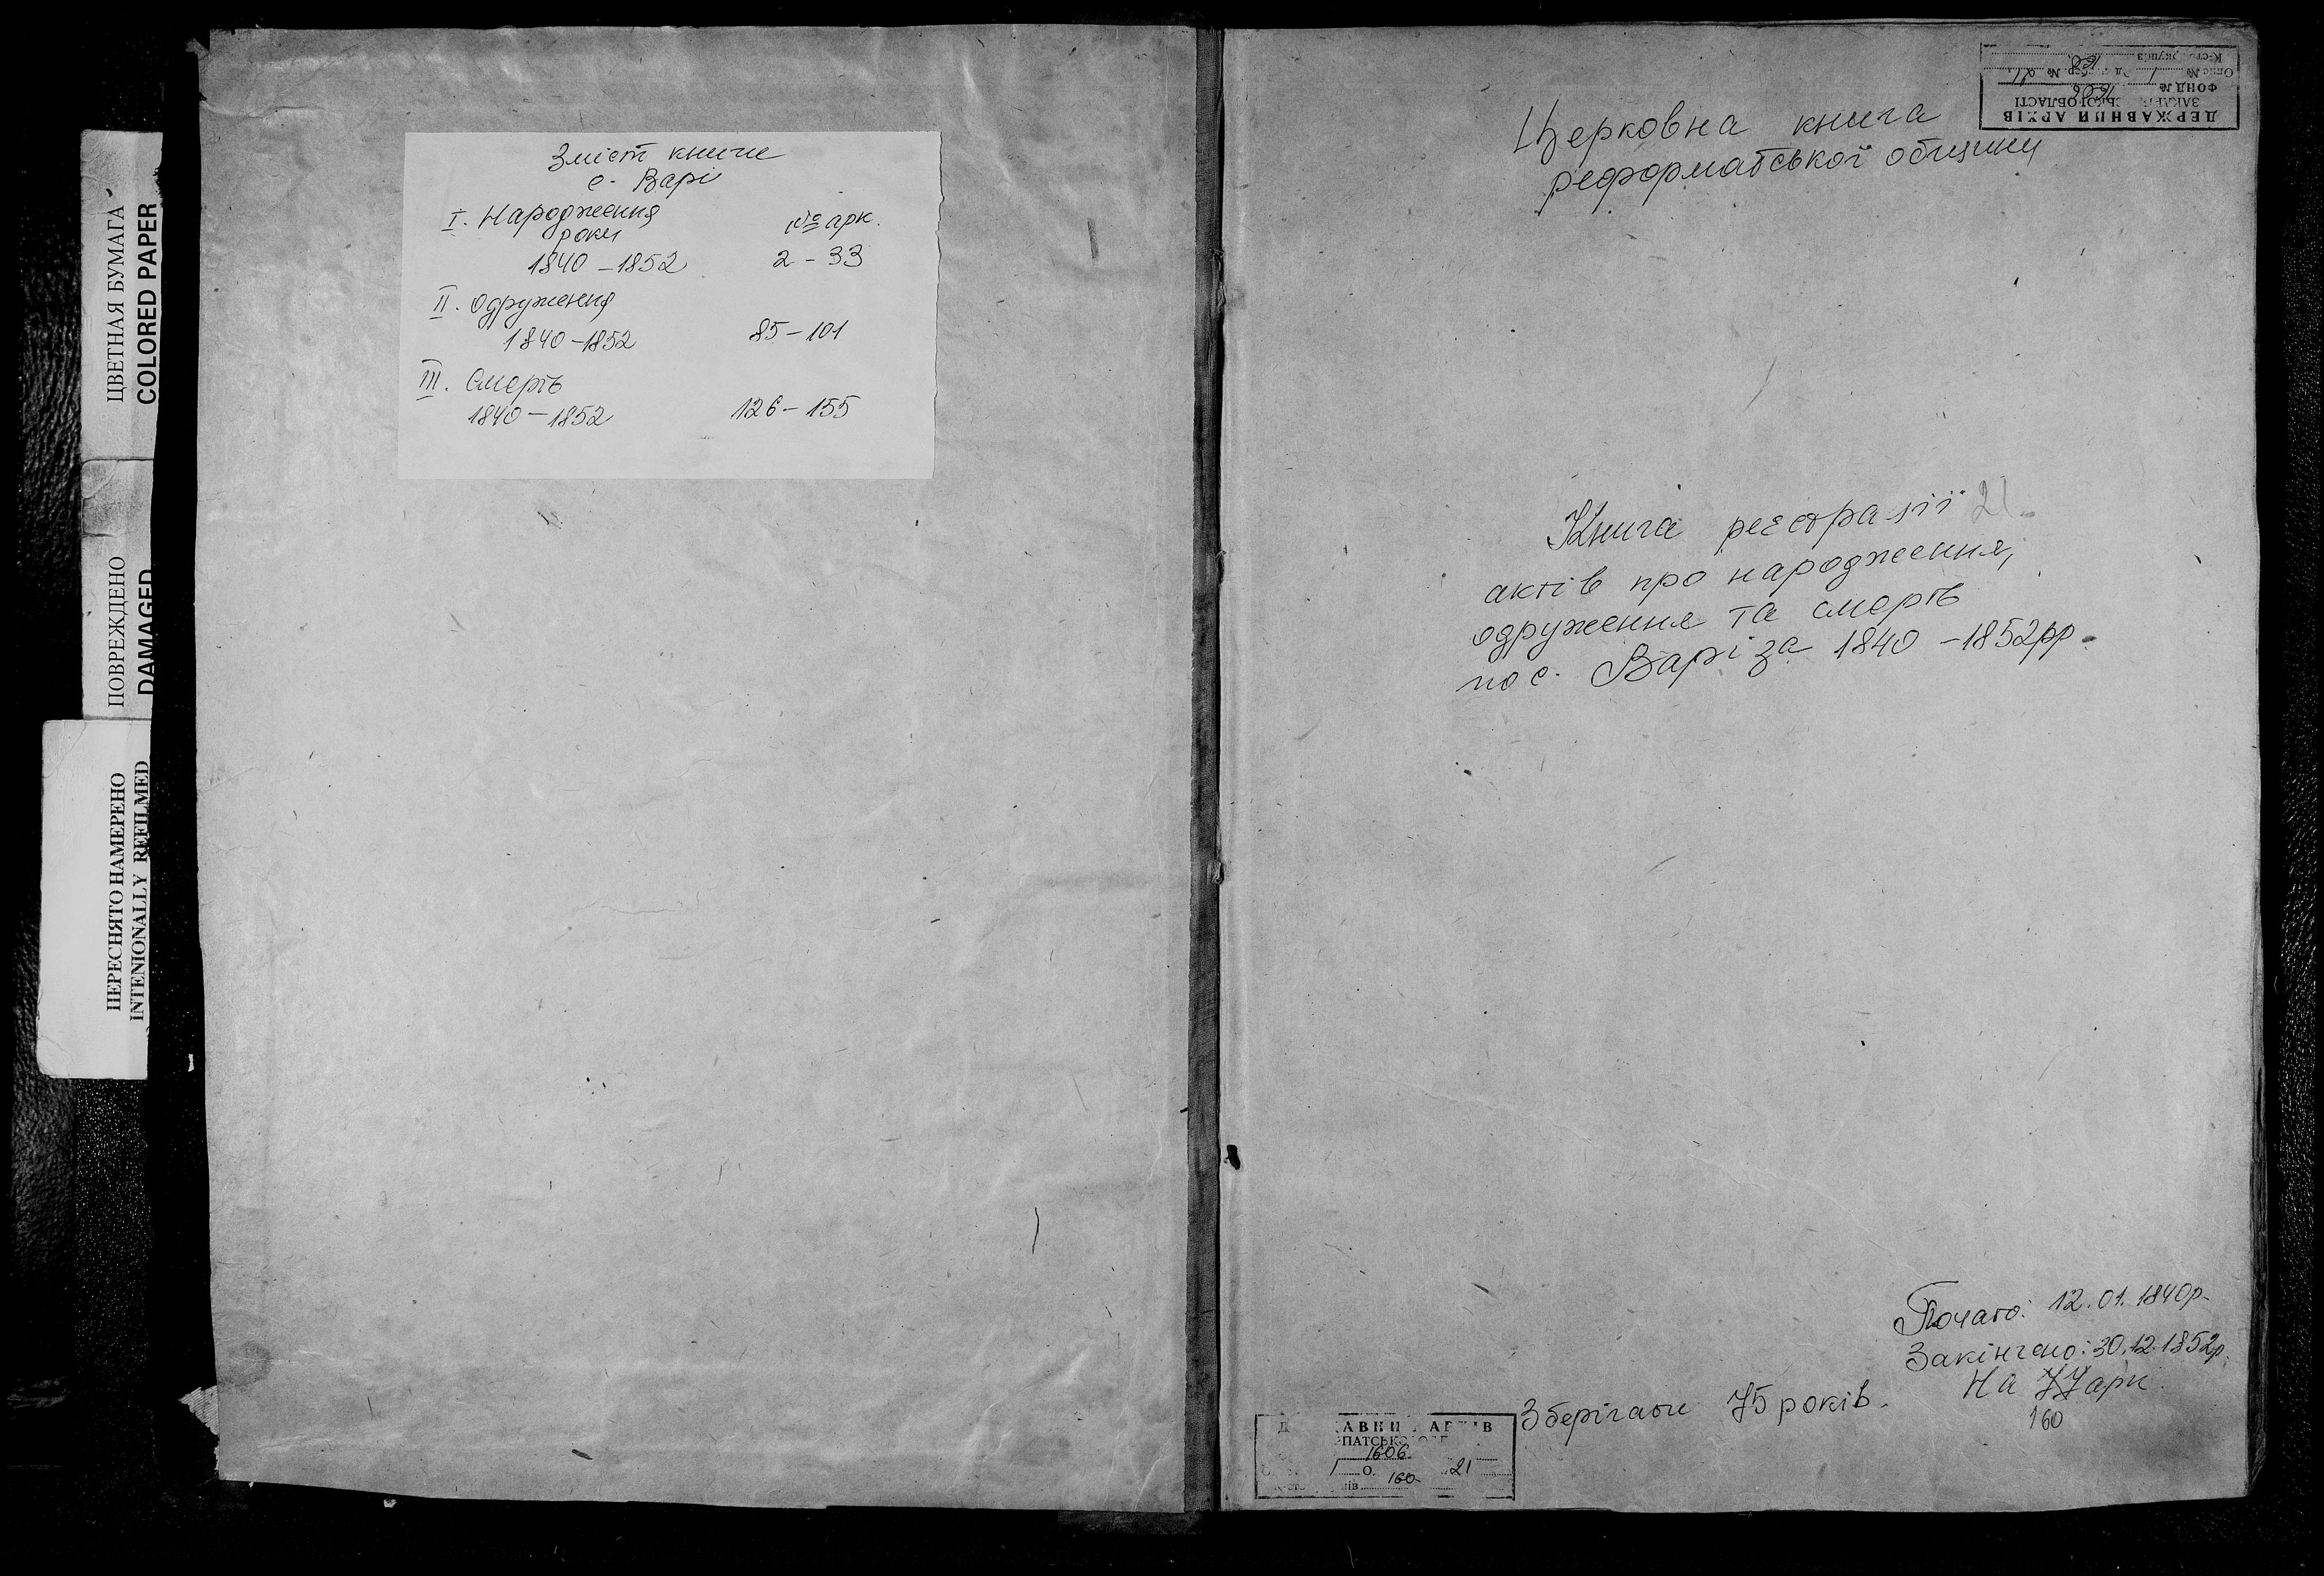 ЦВЕТНАЯ БУМАГА
COLORED PAPER
ПОВРЕЖДЕНО
DAMAGED
ПЕРЕСНЯТО НАМЕРЕНО
INTENIONALLY REFILMED
Зміст книги
с. Варі
I. Народження № арк.
роки
1840 - 1852 2 - 33
II. Одруження
1840 - 1852 85 - 101
III. Смерть
1840 - 1852 126 - 155
ДЕРЖАВНИЙ АРХІВ
ОБЛАСТІ
ФОНД № 1606
Опис № 1 № 21
Церковна книга
реформатської общини
Книга реєстрації 21
актів про народження,
одруження та смерть
по с. Варі за 1840 - 1852рр.
Почато: 12.01.1840р.
Закінчено: 30.12.1852р.
На 77арк.
160
Зберігати 75 років.
АВНИ АР ІВ
ПАТСЬК
1606
1 О. 21
ів 160